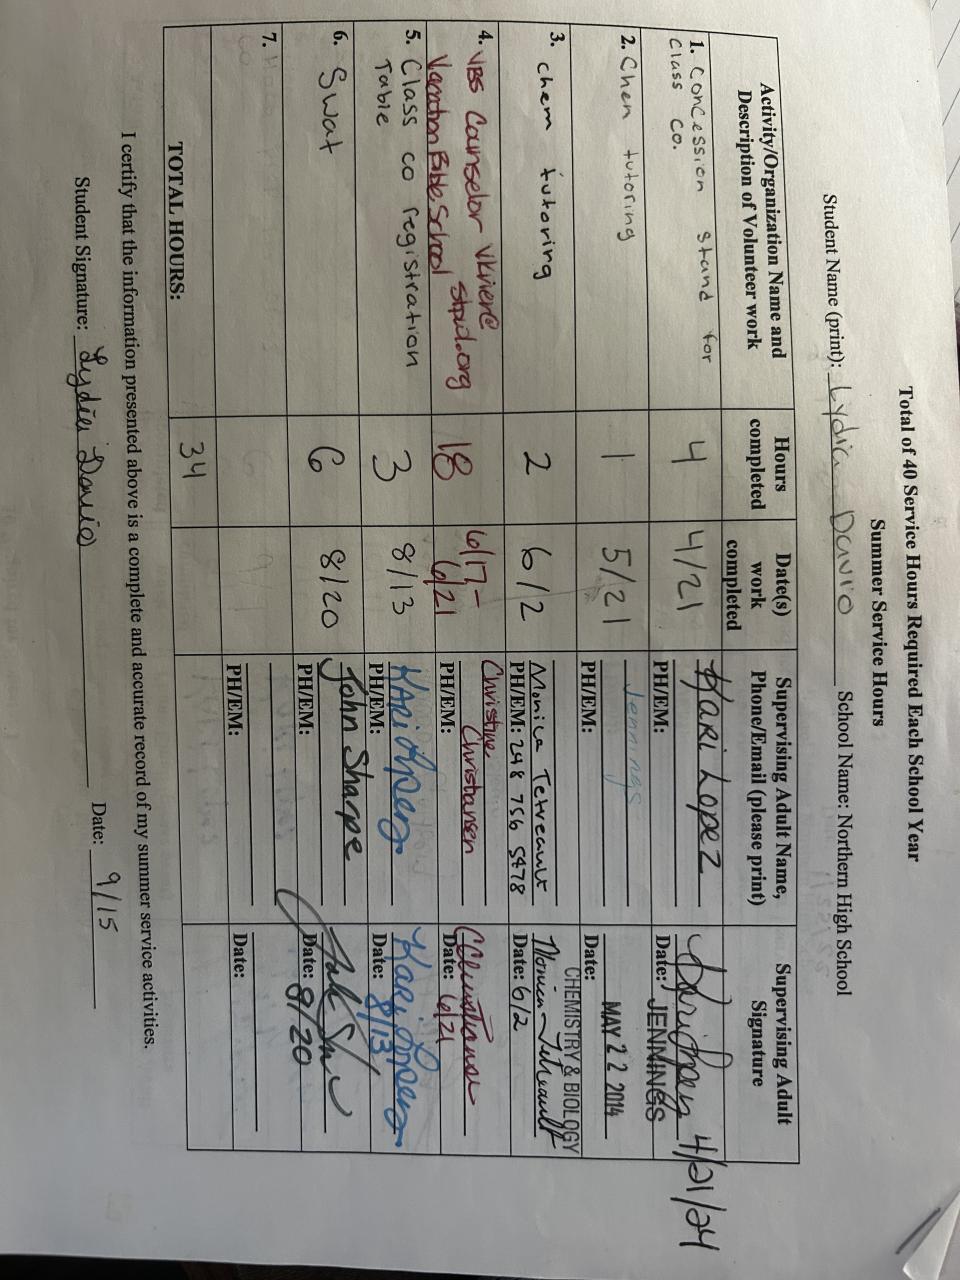 Total of 40 Service Hours Required Each School Year
Summer Service Hours
Student Name (print): Lydia Davio School Name: Northern High School
Activity/Organization Name and Description of Volunteer work
Hours completed
Date(s) work completed
Supervising Adult Name, Phone/Email (please print)
Supervising Adult Signature
1. Concession stand for
Class co.
4
4/21
Kari Lopez
PH/EM:
4/21/24
Date:
2. Chem tutoring
1
5/21
Jennings
PH/EM:
JENNINGS
MAY 22 2014
Date:
CHEMISTRY & BIOLOGY
3. chem tutoring
2
6/2
Monica Tetreault
PH/EM: 248 756 5478
Monica Tetreault
Date: 6/2
4. VBS Counselor Vkivier@
Vacation Bible School stpd.org
18
6/17-
6/21
Christine
Christiansen
PH/EM:
CChristiansen
Date: 6/21
5. Class co registration
Table
3
8/13
Kari Lopez
PH/EM:
Kari Lopez
Date: 8/13
6. Swat
6
8/20
John Sharpe
PH/EM:
Date: 8/20
7.
PH/EM:
Date:
TOTAL HOURS:
34
I certify that the information presented above is a complete and accurate record of my summer service activities.
Student Signature: Lydia Davio Date: 9/15